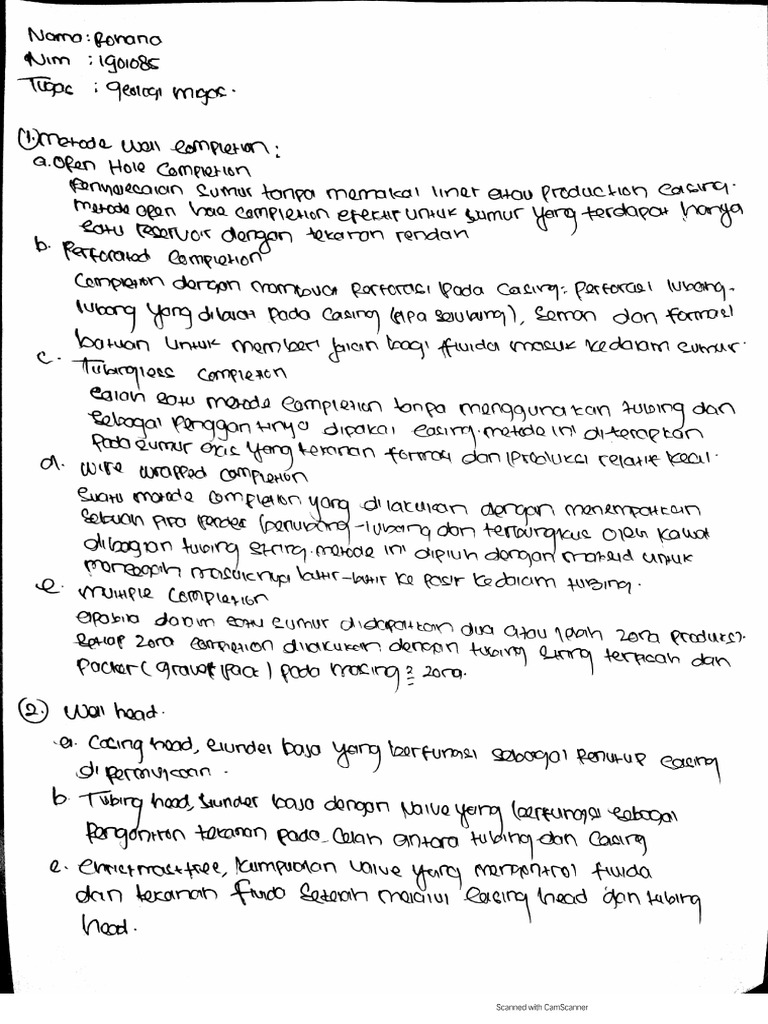 Nama : Ronana
Nim : 1901085
Tugas : geologi migas.
① metode well completion :
a. Open Hole Completion
Penyelesaian sumur tanpa memakai liner atau production casing.
metode open hole completion efektif untuk sumur yang terdapat hanya
satu reservoir dengan tekanan rendah
b. Perforated Completion
Completion dengan membuat perforasi pada casing. perforasi lubang-
lubang yang dibuat pada casing (pipa selubung), semen dan formasi
batuan untuk memberi jalan bagi fluida masuk kedalam sumur.
c. Tubingless completion
salah satu metode completion tanpa menggunakan tubing dan
sebagai penggantinya dipakai casing. metode ini diterapkan
pada sumur gas yang tekanan formasi dan produksi relatif kecil.
d. wire wrapped completion
suatu metode completion yang dilakukan dengan menempatkan
sebuah pipa berlubang-lubang dan terbungkus oleh kawat
dibagian tubing string. metode ini dipilih dengan maksud untuk
mencegah masuknya butir-butir ke pasir kedalam tubing.
e. multiple completion
apabila dalam satu sumur didapatkan dua atau lebih zona produksi.
Setiap zona completion dilakukan dengan tubing string terpisah dan
packer (gravel pack) pada masing 2 zona.
② Well head.
a. Casing head, silinder baja yang berfungsi sebagai penutup casing
di permukaan.
b. Tubing head, silinder baja dengan valve yang berfungsi sebagai
pengontrol tekanan pada celah antara tubing dan casing
c. christmast tree, kumpulan valve yang mengontrol fluida
dan tekanan fluida setelah melalui casing head dan tubing
head.
Scanned with CamScanner